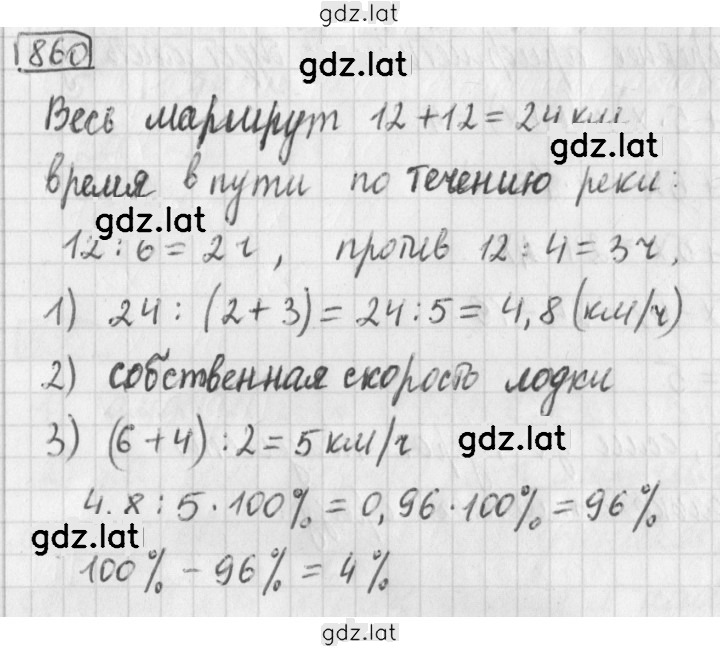 gdz.lat
860
gdz.lat
Весь маршрут 12 + 12 = 24 км
gdz.lat
время в пути по течению реки:
gdz.lat
12 : 6 = 2 ч, против 12 : 4 = 3 ч.
1) 24 : (2 + 3) = 24 : 5 = 4,8 (км/ч)
2) собственная скорость лодки
3) (6 + 4) : 2 = 5 км/ч
gdz.lat
4.8 : 5 · 100% = 0,96 · 100% = 96%
gdz.lat
100% - 96% = 4%
gdz.lat